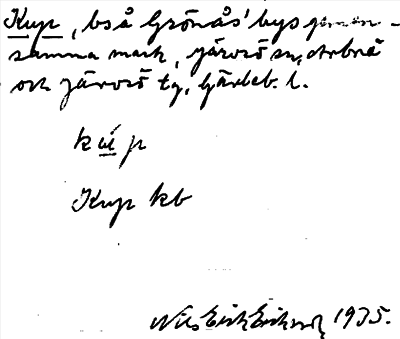 Kup, bs å Grönås' bys gemen-
samma mark, Järvsö sn, Arbrå
och Järvsö tg, Gävleb. l.
kup
Kup kb
Nils Erik Eriksson 1935.